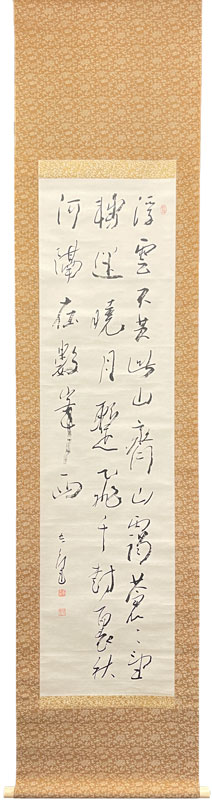 浮雲不共此山齊山靄蒼々望
轉迷曉月暫飛千樹裏秋
河隔在數峯西